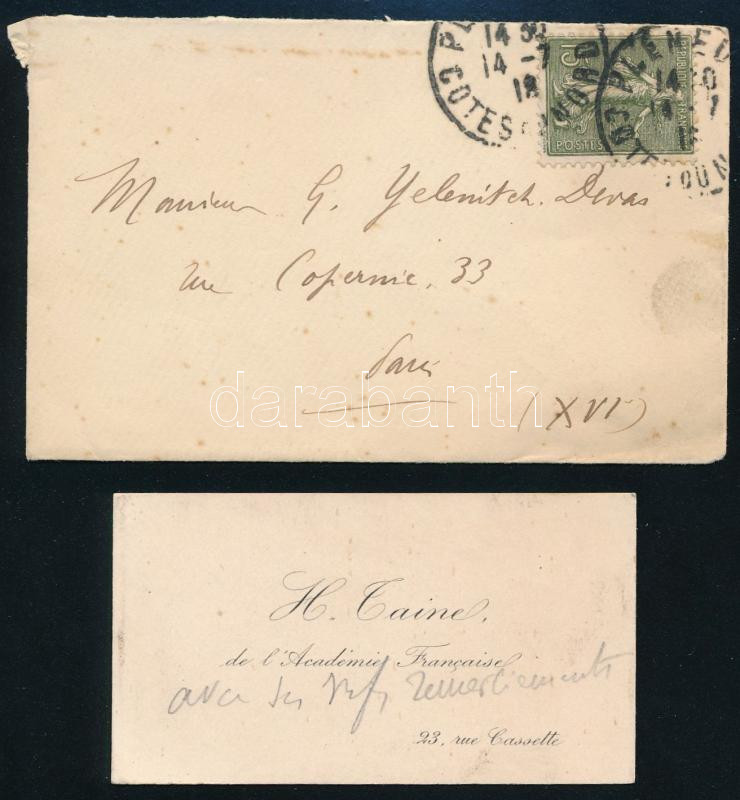 14 30
14 -7
18
COTES DU NORD
15
REPUBLIQUE FRANÇAISE
POSTES
PLENEU
14 30
14 -7
Monsieur G. Yelenitch. Devas
rue Copernic. 33
Paris
(XVI)
darabanth
H. Taine,
de l'Académie Française
avec ses vifs remerciements
23, rue Cassette